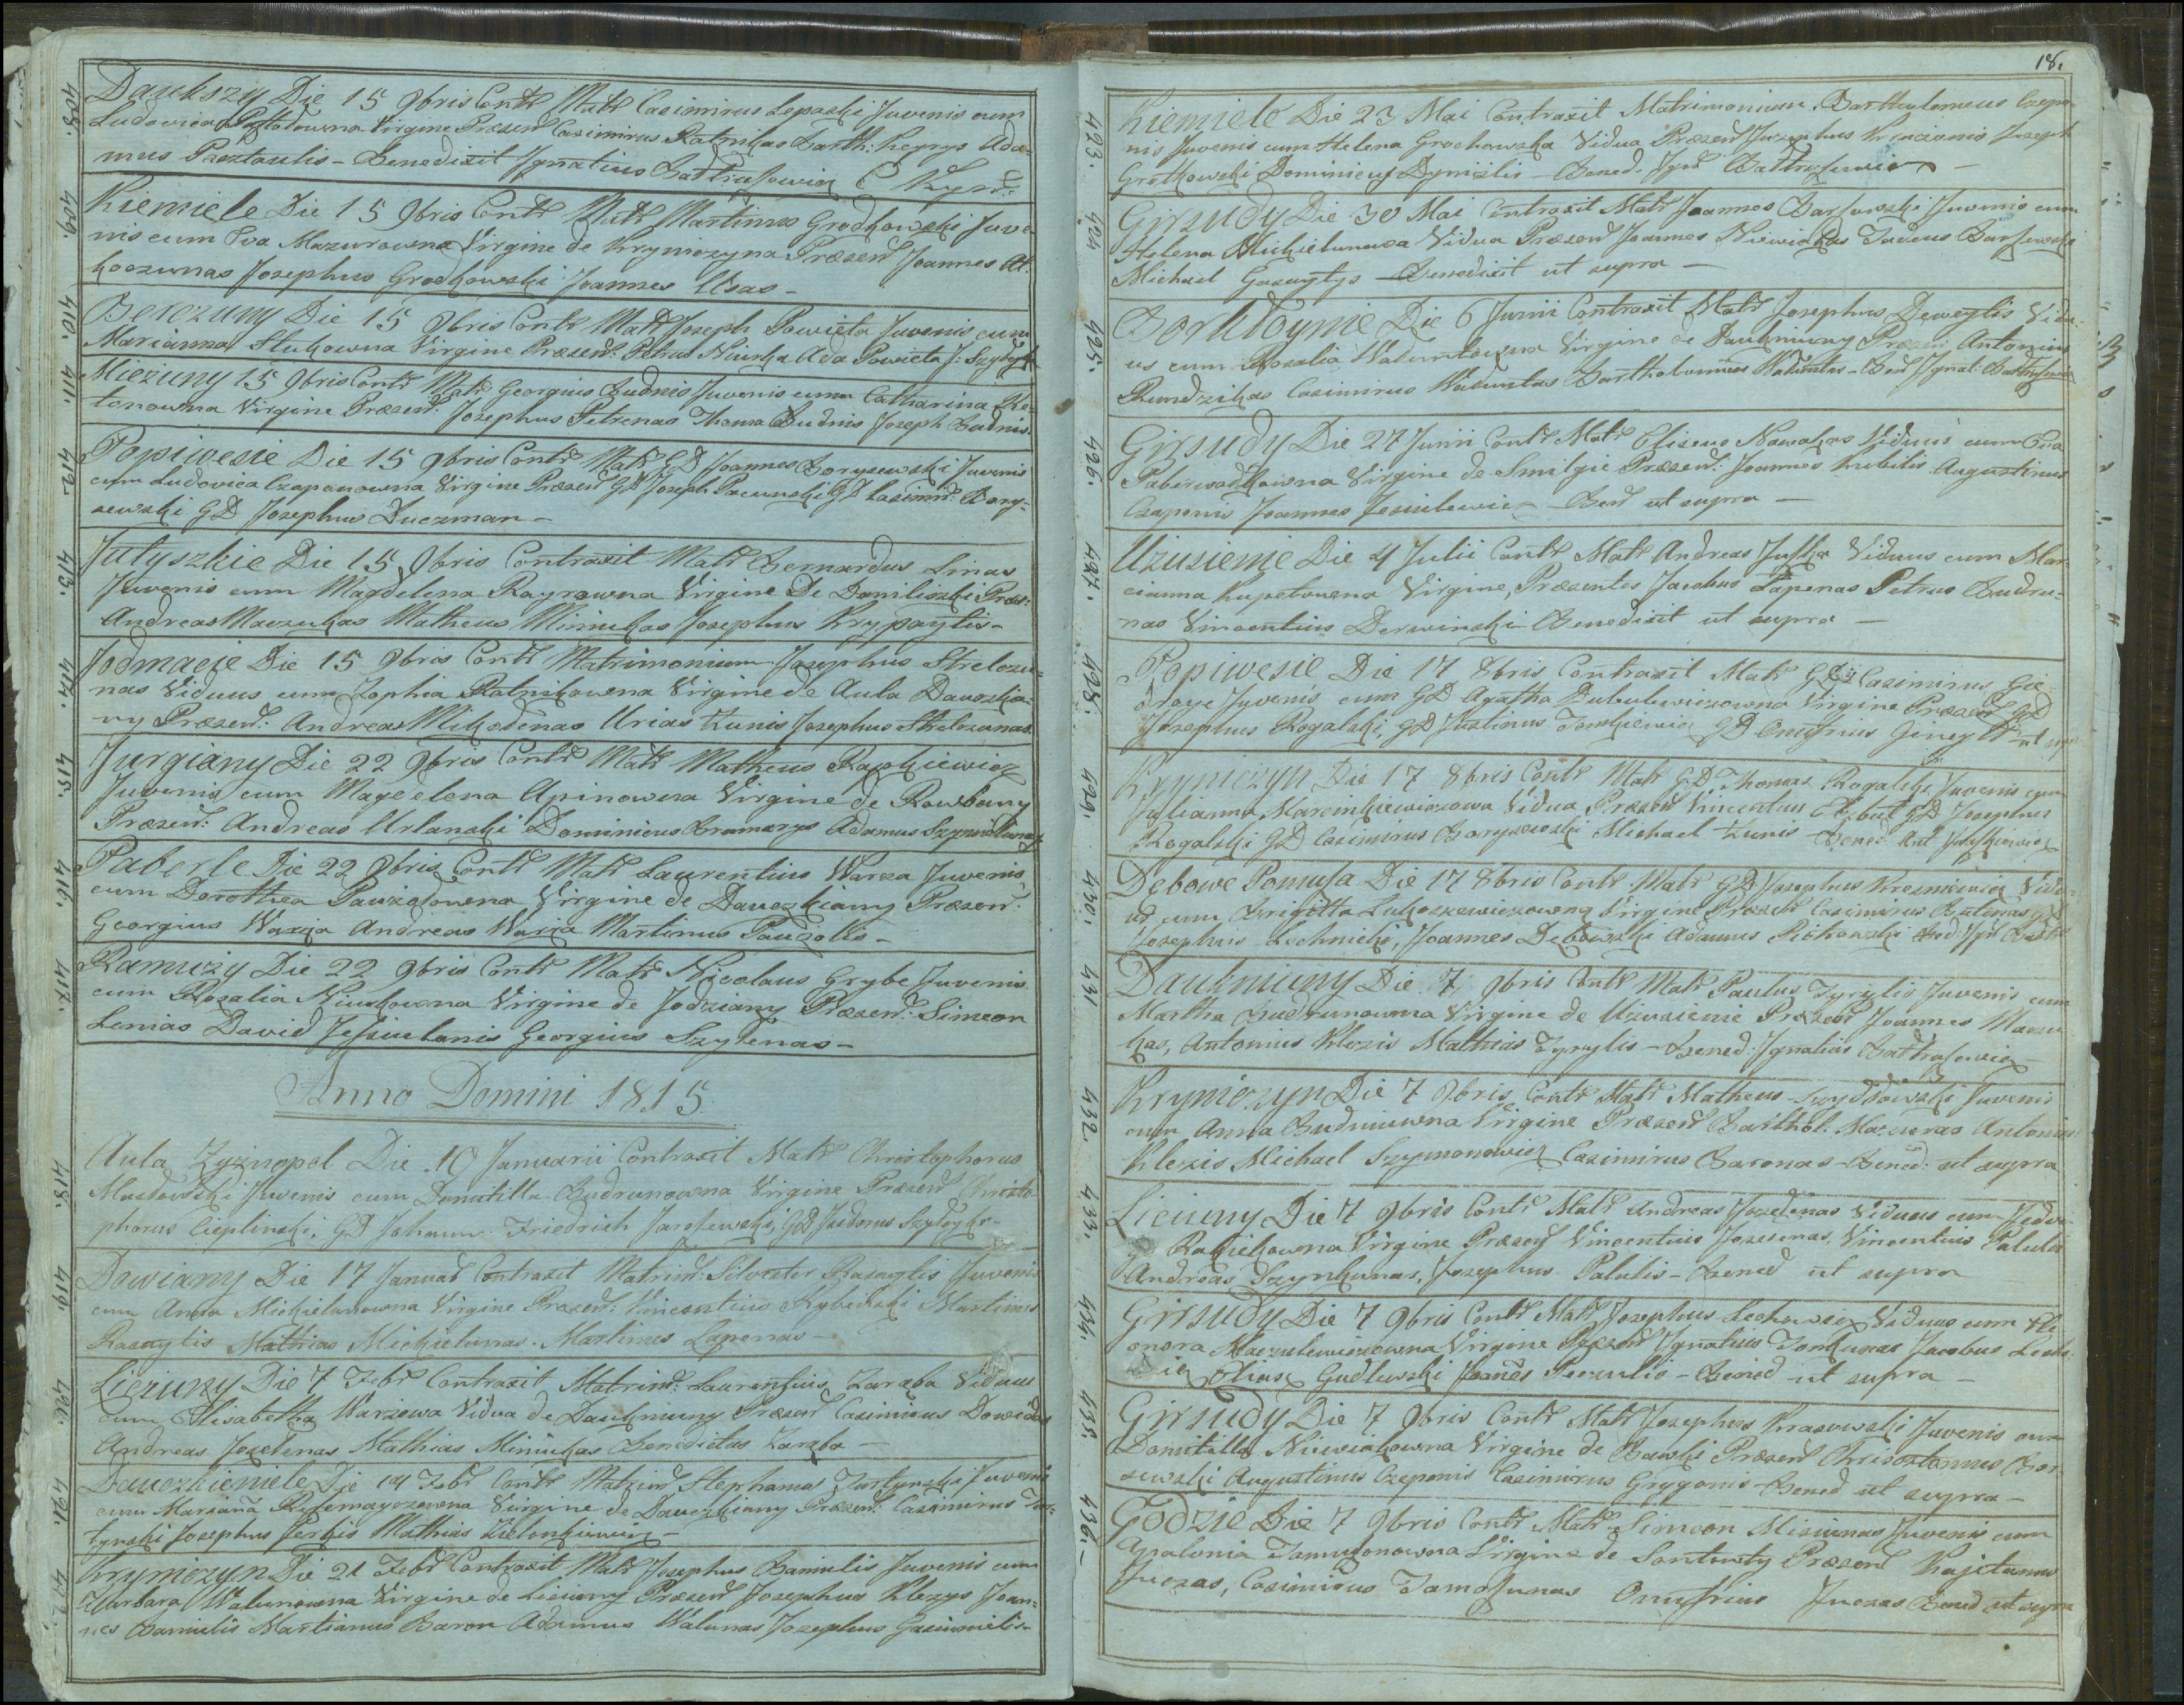 408. Daukszy Die 15 9bris Contr Matr Casimirus Lepaski Juvenis cum
Ludovica Virgine Præsen Casimirus Ratnikas Barth: Kepys Ada=
mus Pasztaulis – Benedixit Ignatius
409. Kiemiele Die 15 9bris Contr Matr Martinus Grodkowski Juve
nis cum Eva Mazurowna Virgine de Krymiczyna Præsen Joannes
Josephus Grodkowski Joannes Usas –
410. Berczuny Die 15 9bris Contr Matr Joseph Powieta Juvenis cum
Marianna Stukowna Virgine Præsen: Petrus Niuska Ada Powieta J:
411. Mieżuny 15 9bris Contr Matr Georgius Budnis Juvenis cum Catharina Ke=
tonowna Virgine Præsen: Josephus Petrenas Thoma Budnis Joseph Budnis.
412. Popiwesie Die 15 9bris Contr Matr GD Joannes Borysewski Juvenis
cum Ludovica Czaponowna Virgine Præsen GD Joseph Pacunski GD Casimir: Bory=
sewski GD Josephus Duczman –
413. Jutyszkie Die 15 9bris Contraxit Matr Bernardus Linas
Juvenis cum Magdelena Rayrowna Virgine De Daniliszki Præs:
Andreas Maczukas Matheus Miniukas Josephus Krypaytis –
414. Jodmacie Die 15 9bris Contr Matrimonium Josephus Strelczu=
nas Viduus cum Zophia Ratnikowna Virgine de Aula Dauczkia=
ny Præsen: Andreas Mikodenas Urias Kunis Josephus Strelczunas
415. Jurgiany Die 22 9bris Contr Matr Matheus Raszkiewicz
Juvenis cum Magdelena Apinowna Virgine de Rowbany
Præsen: Andreas Urlanski Dominicus Bramarys Adamus
416. Paberle Die 22 9bris Contr Matr Laurentius Warza Juvenis
cum Dorothea Pauzolowna Virgine de Dauczkiany Præsen:
Georgius Warza Andreas Warza Martinus Pauzolis –
417. Ramuży Die 22 9bris Contr Matr Nicolaus Grybe Juvenis
cum Rozalia Niuskowna Virgine de Jodziany Præsen: Simeon
Lenias David Jesiulanis Georgius Szylenas –
Anno Domini 1815.
418. Aula Żyznopol Die 10 Januarii Contraxit Matr Christophorus
Masłowski Juvenis cum Domitilla Budrunowna Virgine Præsen Christo
phorus Cieplinski, GD Johann Friedrich Jarosewski GD Isidorus
419. Dowiany Die 17 Januar Contraxit Matrim: Silvester Rasaylis Juvenis
cum Anna Mickielunowna Virgine Præsen: Vincentius Rybinski Martinus
Rasaylis Mathias Mickielunas. Martinus Lapenas –
420. Licziuny Die 7 Febr Contraxit Matrim: Laurentius Zaraba Viduus
cum Elisabetha Warżowa Vidua de Daukniuny Præsen Casimirus Dowidas
Andreas Jozedenas Mathias Miniukas Benedictus Zaraba –
421. Dauczkiemiele Die 14 Febr Contr Matrim Stephanus Turtynski Juvenis
cum Marianna Virgine de Dauczkiany Præsen: Casimirus Tur=
tynski Josephus Perkis Mathias
422. Krymiczyn Die 21 Febr Contraxit Matr Josephus Baniulis Juvenis cum
Barbara Walunowna Virgine de Liciuny Præsen Josephus Klezys Joan=
nes Baniulis Martianus Baron Adamus Walunas Josephus Gasiunielis –
18.
423. Kiemiele Die 23 Mai Contraxit Matrimonium Bartholomeus Czepo
nis Juvenis cum Helena Grochowska Vidua Præsen Josephus Joseph
Grotkowski Dominicus Dynislis – Bened. Ign Battrasewicz –
424. Girsudy Die 30 Mai Contraxit Matr Joannes Barsewski Juvenis cum
Helena Mickielunowa Vidua Præsen Joannes Niewiakas Tadeus Barsewski
Michael Gasaytys – Benedixit ut supra –
425. Die 6 Junii Contraxit Matr Josephus Deweytis Vidu
us cum Rosalia Waluntowna Virgine de Daukniuny Præsen Antonius
Rundzikas Casimirus Waluntas Bartholomeus Waluntas – Ben Ignat: Battrasewicz
426. Girsudy Die 27 Junii Contr Matr Eliseus Nawakas Viduus cum Eva
Virgine de Smilgie Præsen: Joannes Kubilis Augustinus
Czaponis Joannes Jesiulewicz – Ben ut supra –
427. Użusienie Die 4 Julii Contr Matr Andreas Juska Viduus cum Mar=
cianna Kupetowna Virgine, Præsentes Jacobus Papenas Petrus Budru=
nas Vincentius Derwinski Benedixit ut supra –
428. Popiwesie Die 17 8bris Contraxit Matr GD Casimirus Gie
droyc Juvenis cum GD Agatha Dubulewiczowna Virgine Præsen GD
Josephus Rogalski, GD Justinus Jankiewicz GD Onufrius Gineytt ut supr
429. Krymiczyn Die 17 8bris Contr Matr GD Thomas Rogalski Juvenis cum
Julianna Marcinkiewiczowa Vidua Præsen Vincentius Elzbut GD Josephus
Rogalski GD Casimirus Borysewski Michael Kunis Bened: Ant Juszkiewicz
430. Dębowe Pomusa Die 17 8bris Contr Matr GD Josephus Kresniewicz Vidu
us cum Brigitta Lukaszewiczowna Virgine Præsen Casimirus Butenas GD
Josephus Lechnicki, Joannes Debowski Adamus Pietkowski Bed: Ign
431. Daukniuny Die 7 9bris Contr Matr Paulus Tyrylis Juvenis cum
Martha Budrunowna Virgine de Użusienie Præsen Joannes Maczu
kas, Antonius Klezis Mathias Tyrylis – Bened: Ignatius Battrasewicz –
432. Krymiczyn Die 7 9bris Contr Matr Matheus Szydłowski Juvenis
cum Anna Budniuwna Virgine Præsen Barthol. Mazuras Antonius
Klezis Michael Szymonowicz Casimirus Baronas – Bened: ut supra
433. Liciuny Die 7 9bris Contr Matr Andreas Jozedenas Viduus cum Jedvi
Virgine Præsen Vincentius Jozesenas, Vincentius Palulis
Andreas Szynkunas, Josephus Palulis – Bened ut supra
434. Girsudy Die 7 9bris Contr Matr Josephus Lechowicz Viduus cum Ele
onora Maczulewiczowna Virgine Præsen Ignatius Jankunas Jacobus Lecho
wicz Elias Gudlewski Joañes Peczulis – Bened ut supra –
435. Girsudy Die 7 9bris Contr Matr Josephus Krasowski Juvenis cum
Domitilla Niewiakowna Virgine de Præsen Chrisostomus Bor
sewski Augustinus Czeponis Casimirus Grygonis – Bened ut supra –
436. Godzie Die 7 9bris Contr Matr Simeon Misiunas Juvenis cum
Apolonia Virgine de Præsen Kajetanus
Juczas, Casimirus Tamosunas Onufrius Juczas Bened ut supra